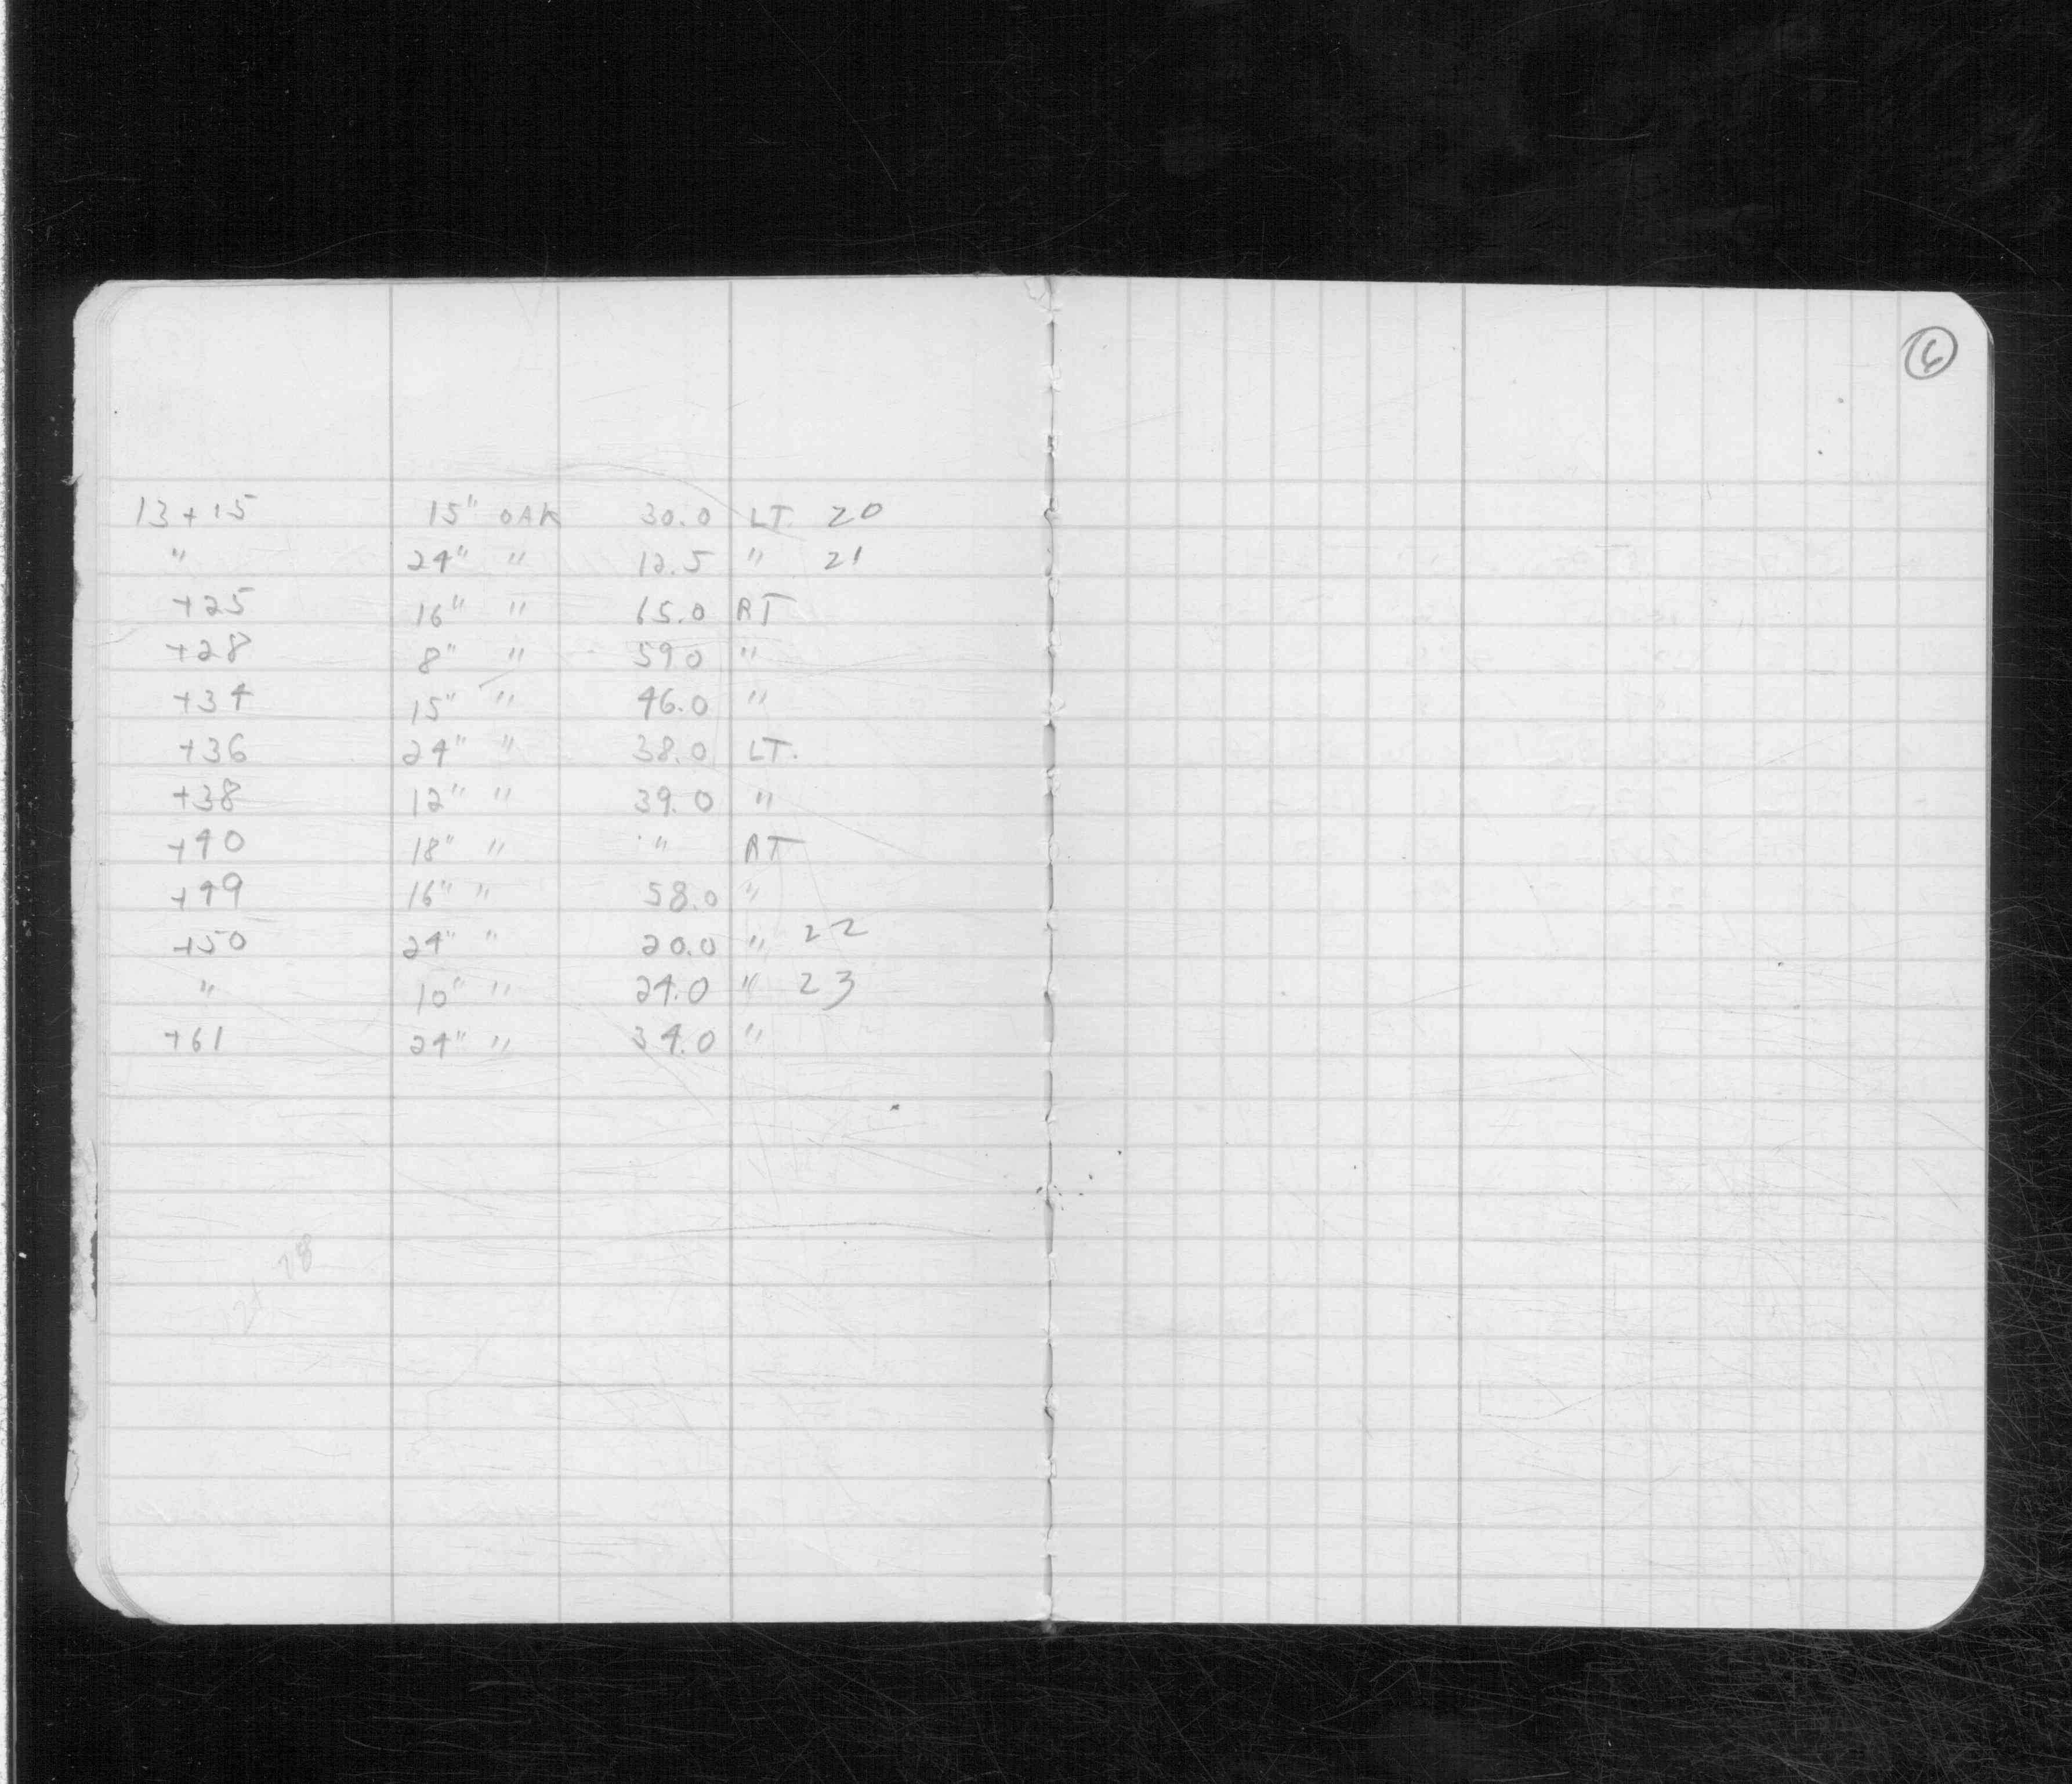 6
13+15 15" OAK 30.0 LT. 20
" 24" " 12.5 " 21
+25 16" " 15.0 RT
+28 8" " 59.0 "
+34 15" " 46.0 "
+36 24" " 38.0 LT.
+38 12" " 39.0 "
+40 18" " " RT
+49 16" " 58.0 "
+50 24" " 20.0 " 22
" 10" " 24.0 " 23
+61 24" " 34.0 "